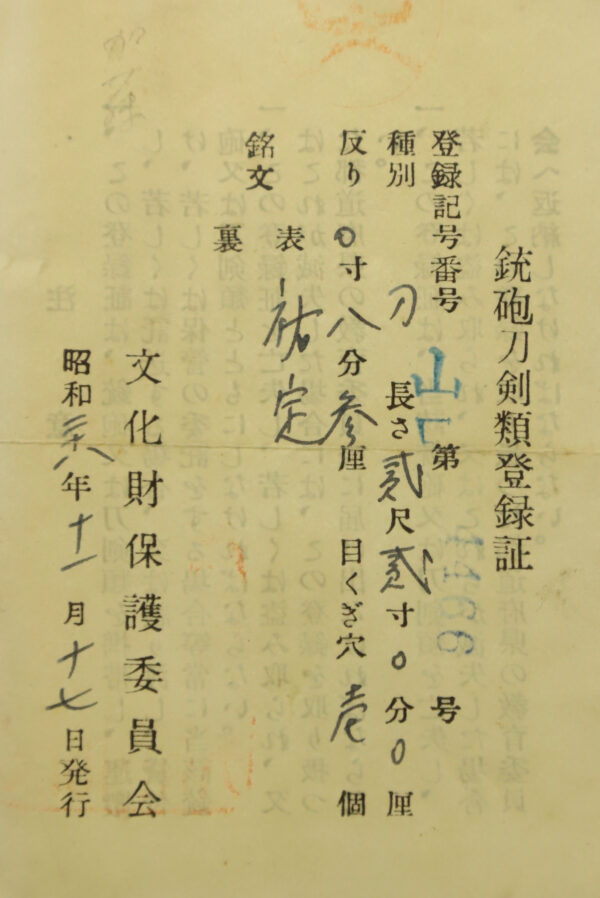 銃砲刀剣類登録証
登録記号番号 山 第 号
種別 刀 長さ 貳尺貳寸0分0厘
反り 0寸八分参厘 目くぎ穴 壱個
銘文
表 祐定
裏
文化財保護委員会
昭和 年十一月十七日発行